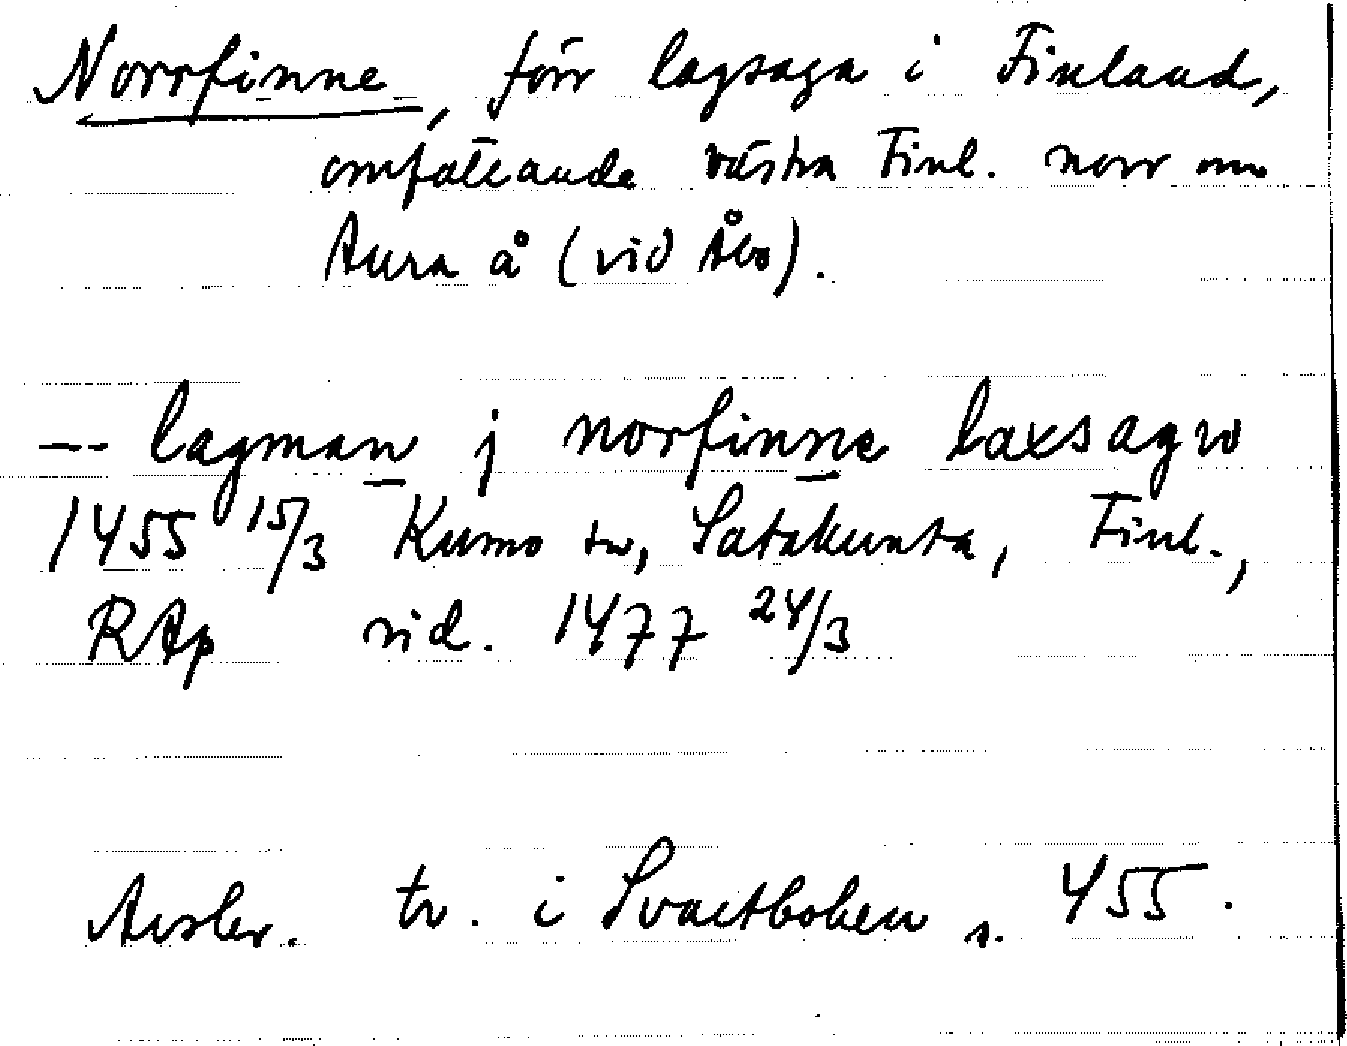 Norrfinne, förr lagsaga i Finland,
omfattande västra Finl. norr om
Aura å (vid Åbo).
-- lagman j norfinne laxsagw
1455 15/3 Kumo sn, Satakunta, Finl.,
RAp vid. 1477 24/3
Avskr. tr. i Svartboken s. 455.